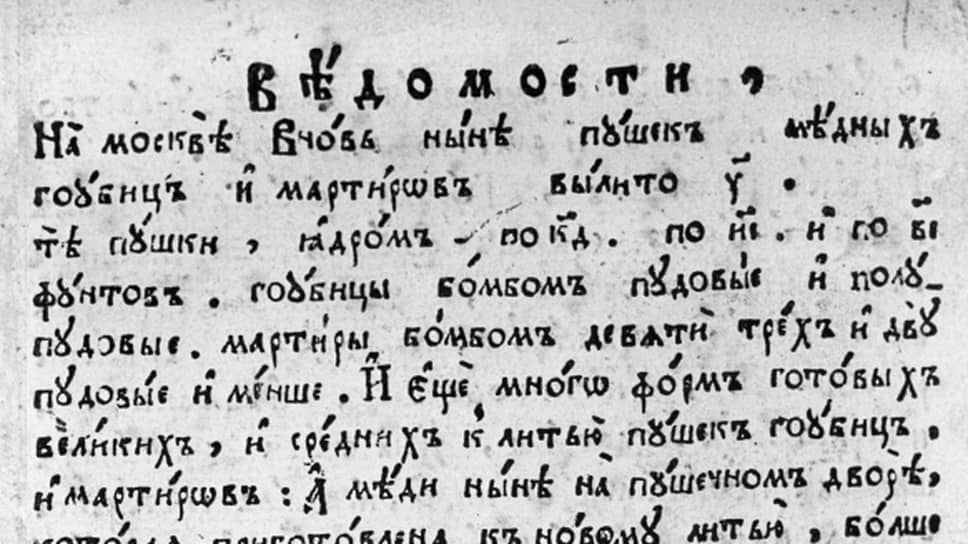 Вѣ́домости,
На̀ москвѣ̀ вно́вь ны́нѣ пу́шекъ мѣ́дныхъ
гоу́бицъ и҆ марти́рѡвъ вы́лито у҃.
тѣ̀ пу́шки, ꙗ҆дро́мъ - по к҃д. по и҃і. и҆ по в҃і
фу́нтовъ. гоу́бицы бо́мбомъ пудовы́е и҆ полу́-
пудовые. марти́ры бо́мбомъ девѧти̑ тре́хъ и҆ двꙋ̀
пудовы́е и҆ ме́нше. И҆ є҆щѐ мно́гѡ фо́рмъ гото́выхъ
вели́кихъ, и҆ сре́днихъ к̾ литью̀ пу́шекъ гоу́бицъ.
и҆ марти́рѡвъ: А҆ мѣ́ди ны́нѣ на̀ пу́шечномъ дворѣ̀,
кото́раѧ приготовлена къ но́вому литью̀, бо́лше